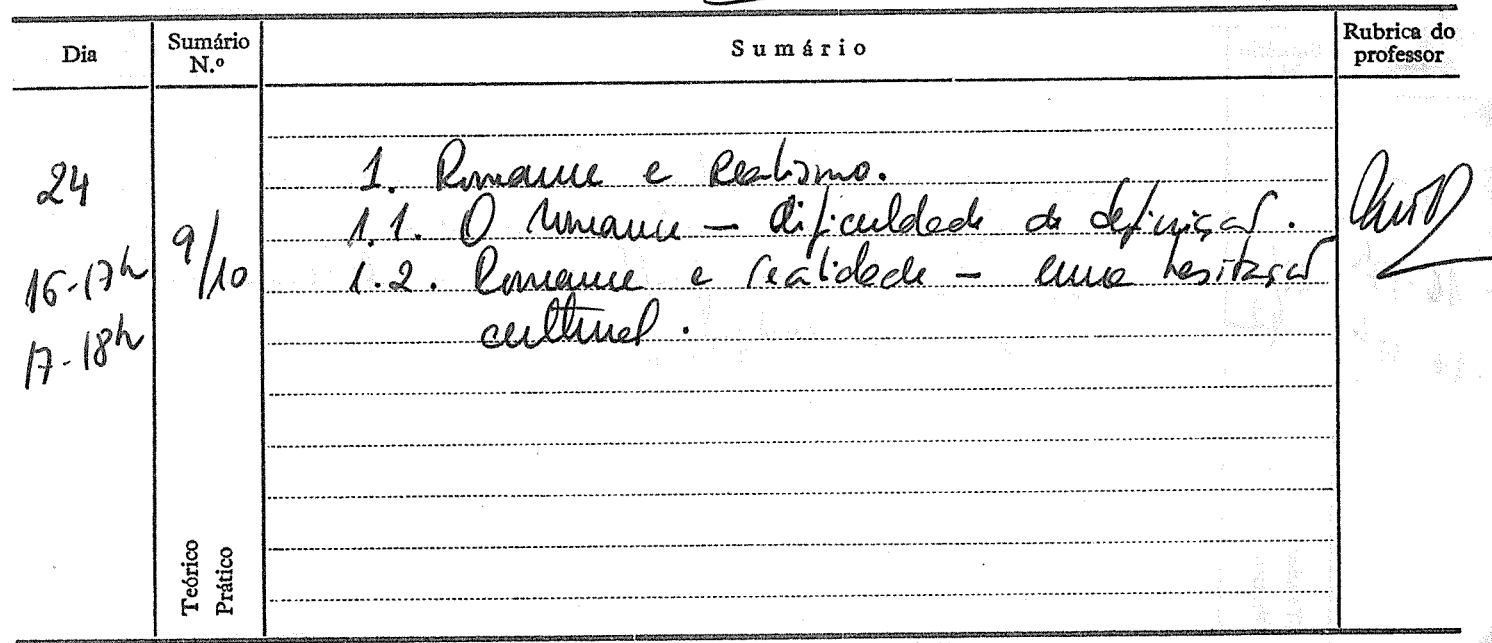 Dia
Sumário N.º
Sumário
Rubrica do professor
24
16-17h
17-18h
9/10
1. Romance e Realismo.
1.1. O romance – dificuldade de definição.
1.2. Romance e realidade – uma hesitação
cultural.
Teórico
Prático